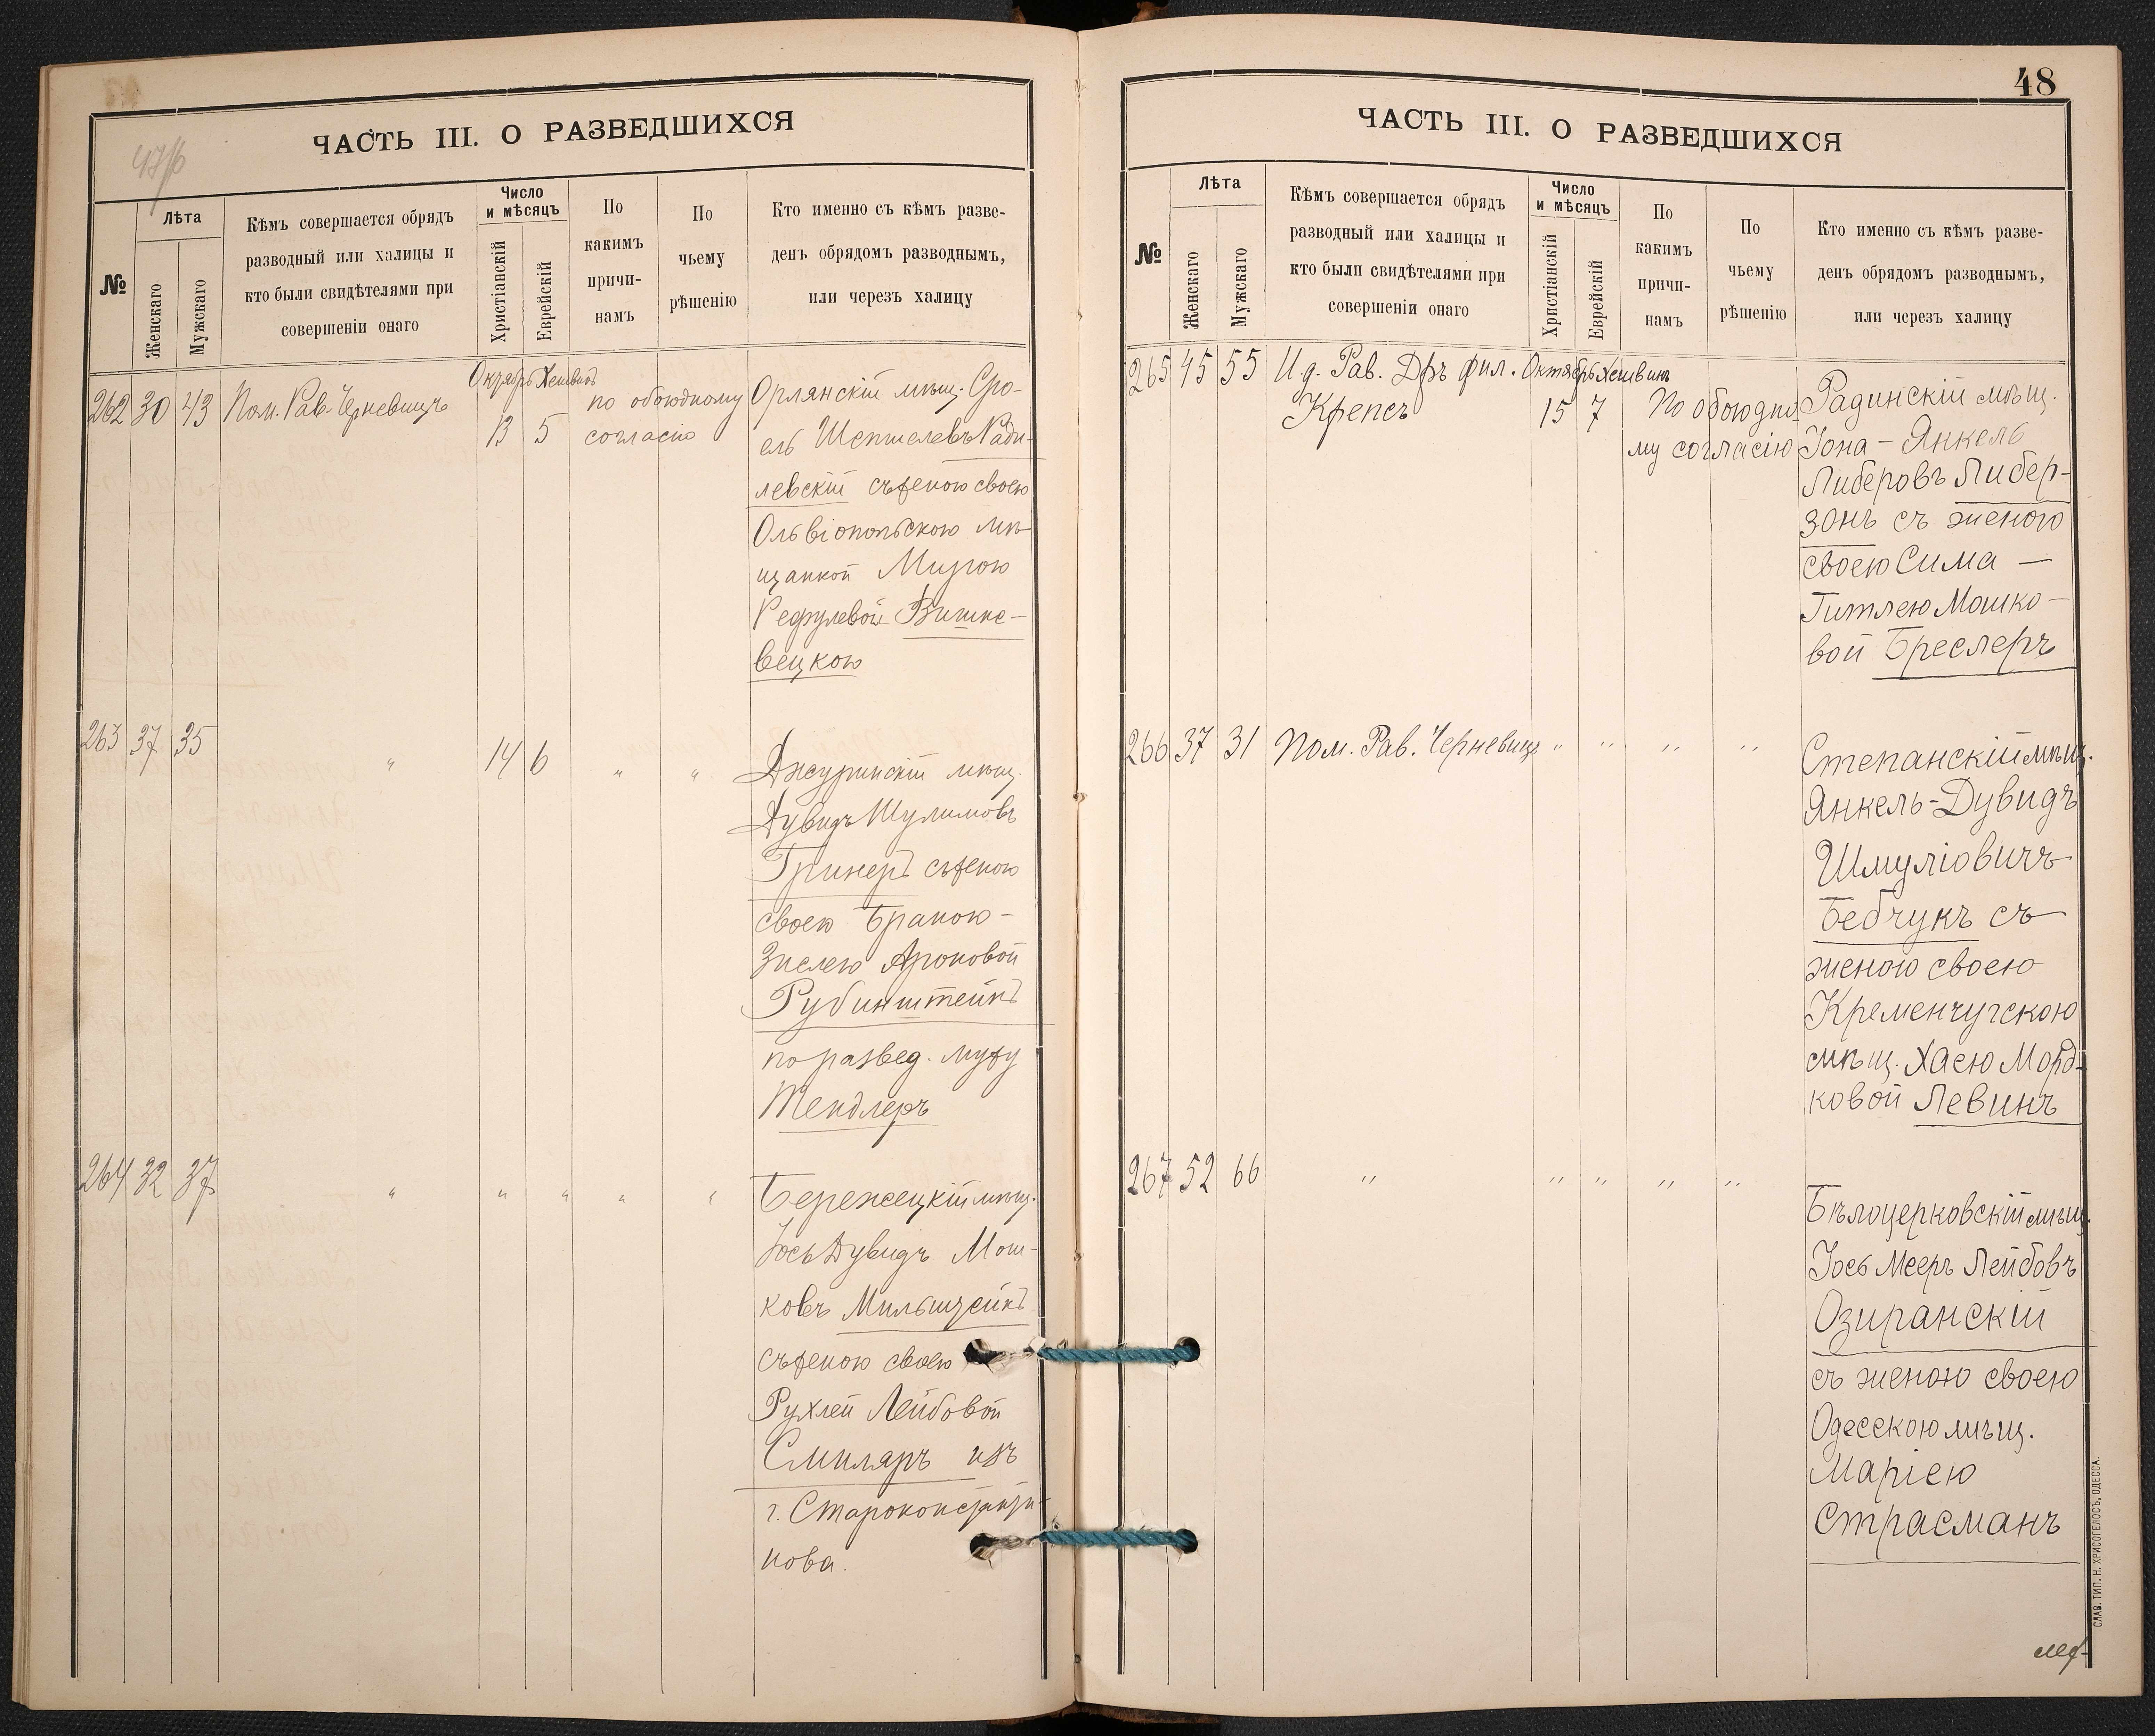 ЧАСТЬ III. О РАЗВЕДШИХСЯ
47/б
№
Лѣта
Женскаго
Мужскаго
Кѣмъ совершается обрядъ
разводный или халицы и
кто были свидѣтелями при
совершеніи онаго
Число
и мѣсяцъ
Христіанскій
Еврейскій
По
какимъ
причи-
намъ
По
чьему
рѣшенію
Кто именно съ кѣмъ разве-
денъ обрядомъ разводнымъ,
или черезъ халицу
Октябрь Хешвинъ
262 30 43 Пом. Рав. Черневицъ 13 5 по обоюдному
согласію
Орлянскій мѣщ. Сро-
ель Шепшелевъ Ради-
левскій съ женою своею
Ольвіопольскою мѣ-
щанкой
Рефулевой Вишне-
вецкою
263 37 35 " 14 6 " "
Ажуринскій мѣщ.
Дувидъ Шулимовъ
Гринеръ съ женою
своею Браною-
Зислею Ароновой
Рубинштейнъ
по развед. мужу
Тендлеръ
264 32 37 " " " " "
Бережецкій мѣщ.
Іось Дувидъ Мош-
ковъ Мильштейнъ
съ женою своею
Рухлей Лейбовой
Смиляръ изъ
г. Староконстанти-
нова.
48
ЧАСТЬ III. О РАЗВЕДШИХСЯ
№
Лѣта
Женскаго
Мужскаго
Кѣмъ совершается обрядъ
разводный или халицы и
кто были свидѣтелями при
совершеніи онаго
Число
и мѣсяцъ
Христіанскій
Еврейскій
По
какимъ
причи-
намъ
По
чьему
рѣшенію
Кто именно съ кѣмъ разве-
денъ обрядомъ разводнымъ,
или черезъ халицу
265 45 55 И.д. Рав. Дръ фил. Октябрь Хешвинъ
Крепсъ 15 7 По обоюдно-
му согласію
Радинскій мѣщ.
Іона - Янкель
Либеровъ Либер-
зонъ съ женою
своею Сима -
Гитлею Мошко-
вой Бреслеръ
266 37 31 Пом. Рав. Черневицъ " " " "
Степанскій мѣщ.
Янкель-Дувидъ
Шмуліовичъ
Бебчукъ съ
женою своею
Кременчугскою
мѣщ. Хаею Морд-
ковой Левинъ
267 52 66 " " " " "
Бѣлоцерковскій мѣщ.
Іось Мееръ Лейбовъ
Озиранскій
съ женою своею
Одесскою мѣщ.
Маріею
Страсманъ
СЛАВ. ТИП. Н. ХРИСОГЕЛОСЪ, ОДЕССА.